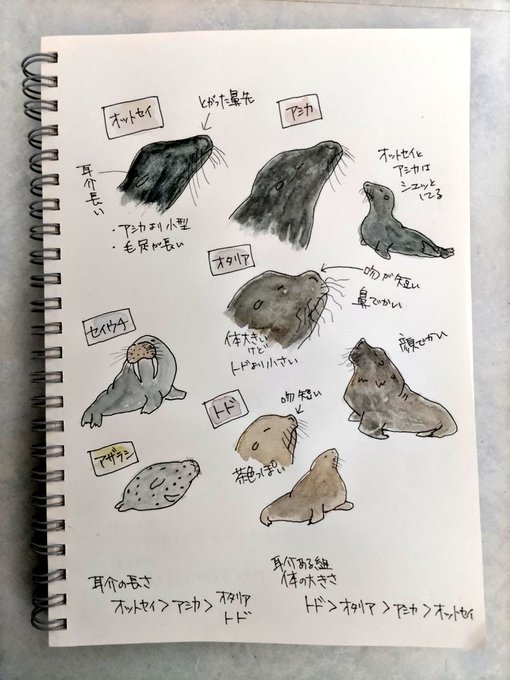 オットセイ
とがった鼻先
アシカ
耳介長い
・アシカより小型
・毛足が長い
オットセイと
アシカは
シュッと
してる
オタリア
吻が短い
鼻でかい
体大きい
けど
トドより小さい
セイウチ
顔でかい
トド
吻短い
茶色っぽい
アザラシ
耳介の長さ
オットセイ>アシカ>オタリア
トド
耳介ある組
体の大きさ
トド>オタリア>アシカ>オットセイ